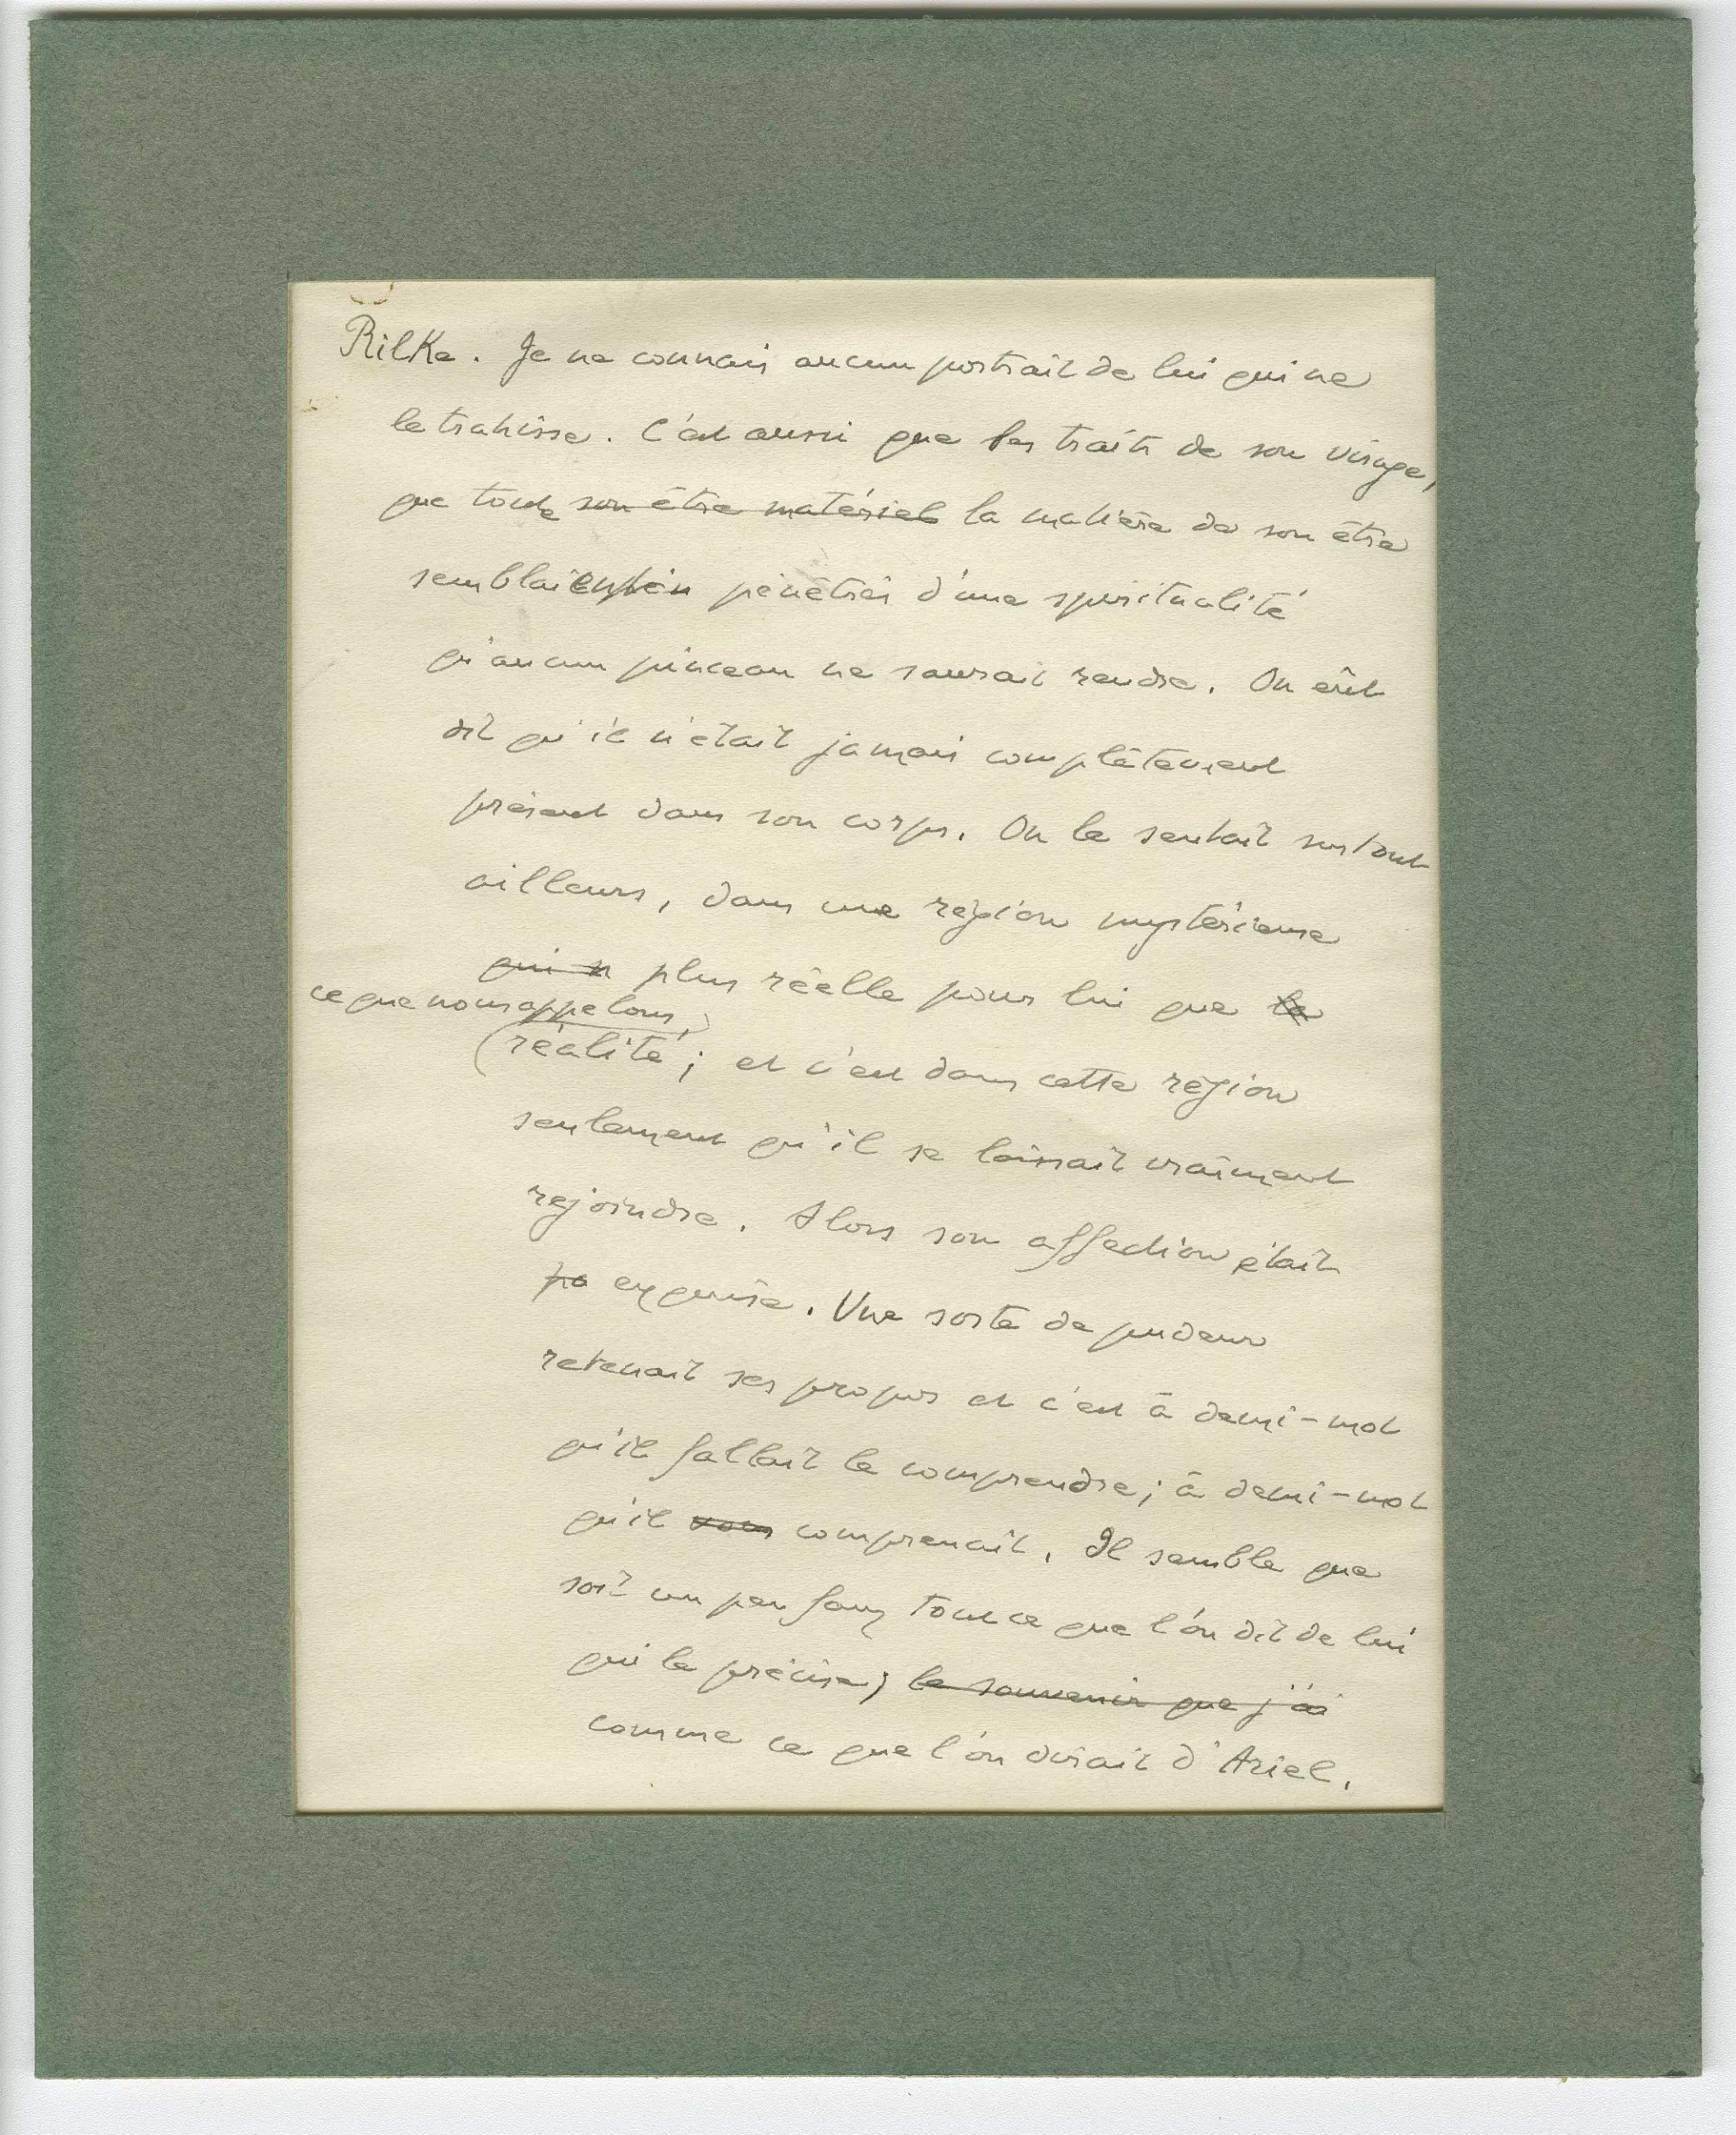 Rilke. Je ne connais aucun portrait de lui qui ne
le trahisse. C'est aussi que les traits de son visage,
que toute son être matériel la matière de son être
semblaient pénétrés d'une spiritualité
qu'aucun pinceau ne saurait rendre. On eût
dit qu'il n'était jamais complètement
présent dans son corps. On le sentait surtout
ailleurs, dans une région mystérieuse
qui n plus réelle pour lui que la
ce que nous appelons,
réalité; et c'est dans cette région
seulement qu'il se laissait vraiment
rejoindre. Alors son affection était
pa exquise. Une sorte de pudeur
retenait ses propos et c'est à demi-mot
qu'il fallait le comprendre; à demi-mot
qu'il vous comprenait. Il semble que
soit un peu faux tout ce que l'on dit de lui
qui le précise; le souvenir que j'ai
comme ce que l'on dirait d'Ariel.